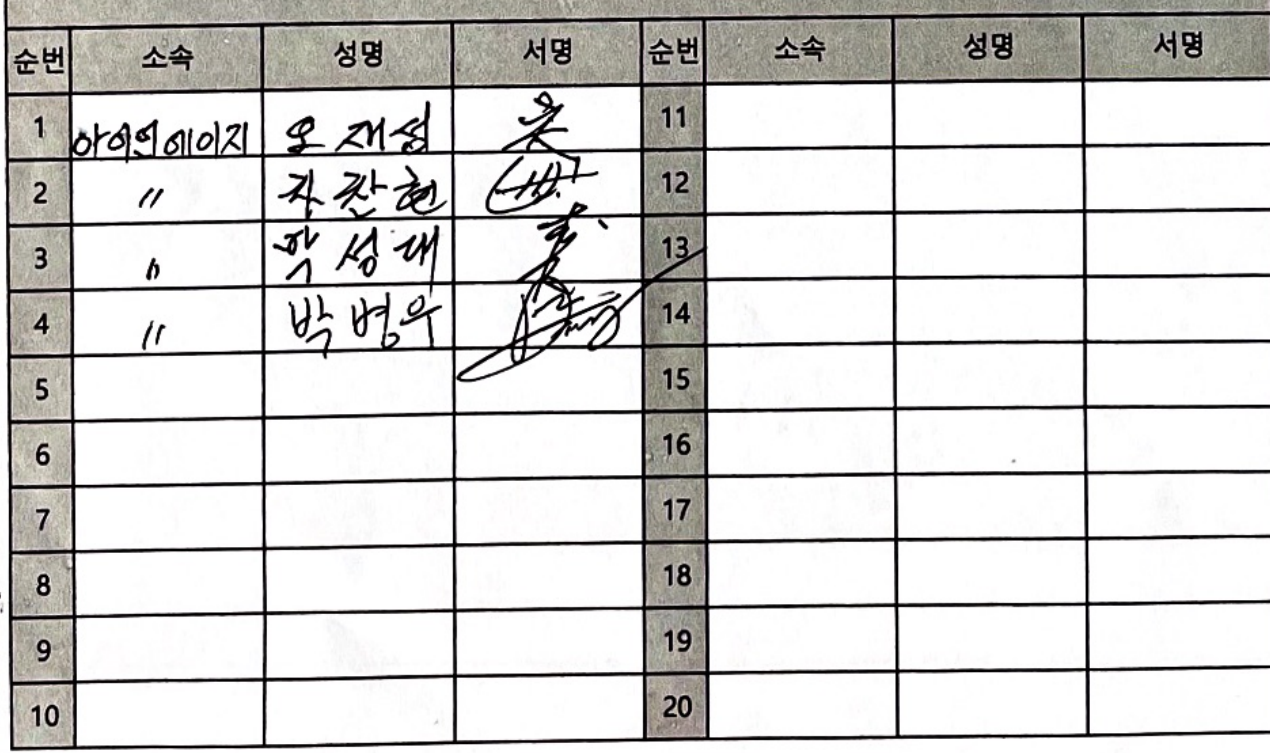 순번 소속 성명 서명 순번 소속 성명 서명
1 오재성 11
2 〃 12
3 〃 성대 13
4 〃 박병우 14
5 15
6 16
7 17
8 18
9 19
10 20